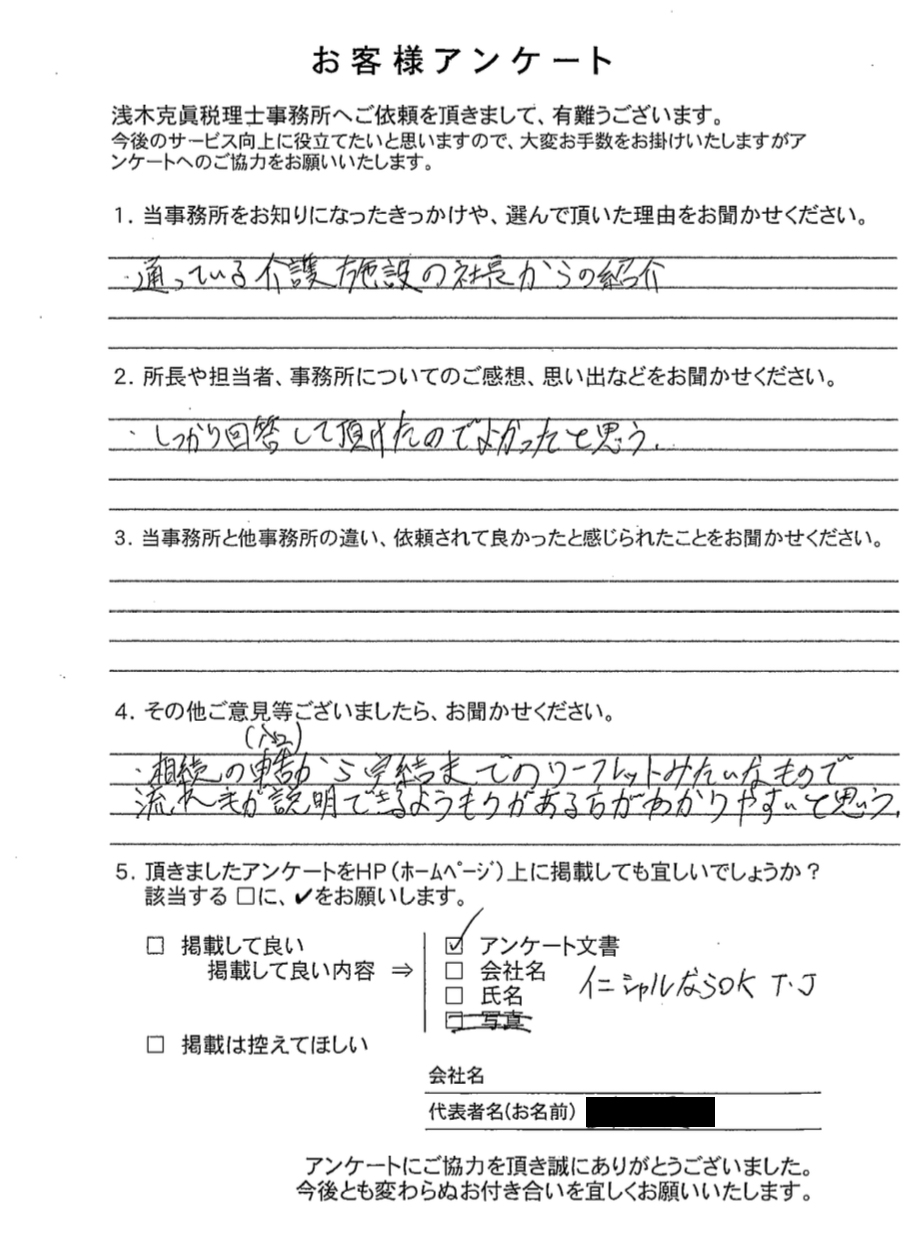 お客様アンケート
浅木克眞税理士事務所へご依頼を頂きまして、有難うございます。
今後のサービス向上に役立てたいと思いますので、大変お手数をお掛けいたしますがア
ンケートへのご協力をお願いいたします。
1. 当事務所をお知りになったきっかけや、選んで頂いた理由をお聞かせください。
・通っている介護施設の社長からの紹介
2. 所長や担当者、事務所についてのご感想、思い出などをお聞かせください。
・しっかり回答して頂けたのでよかったと思う.
3. 当事務所と他事務所の違い、依頼されて良かったと感じられたことをお聞かせください。
4. その他ご意見等ございましたら、お聞かせください。
・相続の申告から完結までのリーフレットみたいなもので
流れ が説明できるようものがある方がわかりやすいと思う.
5. 頂きましたアンケートをHP(ホームページ)上に掲載しても宜しいでしょうか?
該当する □に、✔をお願いします。
□ 掲載して良い
掲載して良い内容 ⇒
☑ アンケート文書
□ 会社名
□ 氏名
□ 写真
イニシャルならOK T.J
□ 掲載は控えてほしい
会社名
代表者名(お名前)
アンケートにご協力を頂き誠にありがとうございました。
今後とも変わらぬお付き合いを宜しくお願いいたします。